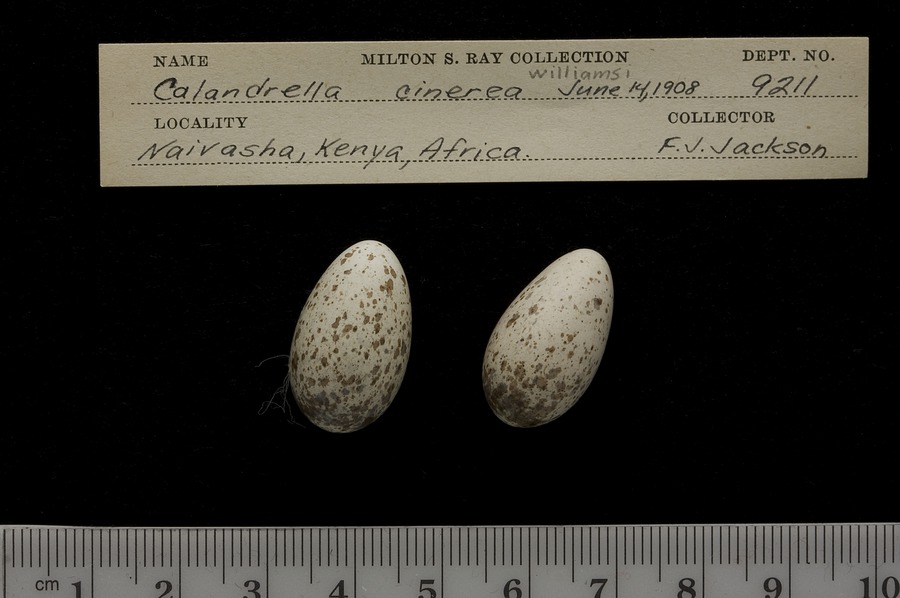 NAME MILTON S. RAY COLLECTION DEPT. NO.
williamsi
Calandrella cinerea June 14, 1908 9211
LOCALITY COLLECTOR
Naivasha, Kenya, Africa. F. J. Jackson
cm 1 2 3 4 5 6 7 8 9 10